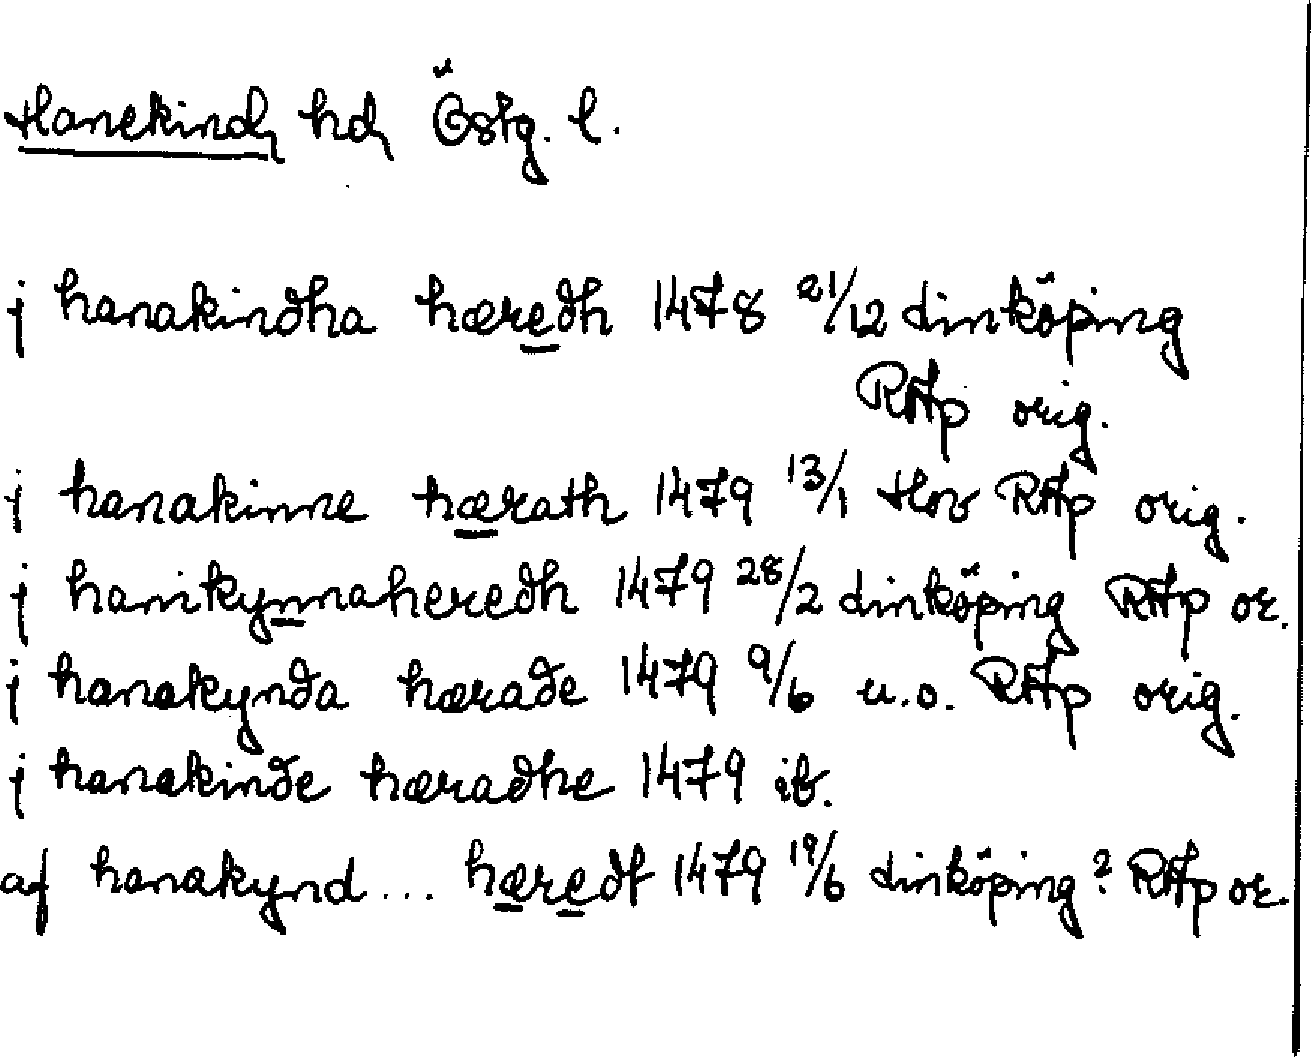 Hanekinds hd, Östg. l.
j hanakindha hæredh 1478 21/12 Linköping
RAp orig.
j hanakinne hærath 1479 13/1 Hov RAp orig.
j hanikynnaheredh 1479 28/2 Linköping RAp or.
j hanakynda hærade 1479 9/6 u.o. RAp orig.
j hanakinde hæradhe 1479 ib.
af hanakynd... hæredt 1479 19/6 Linköping? RAp or.